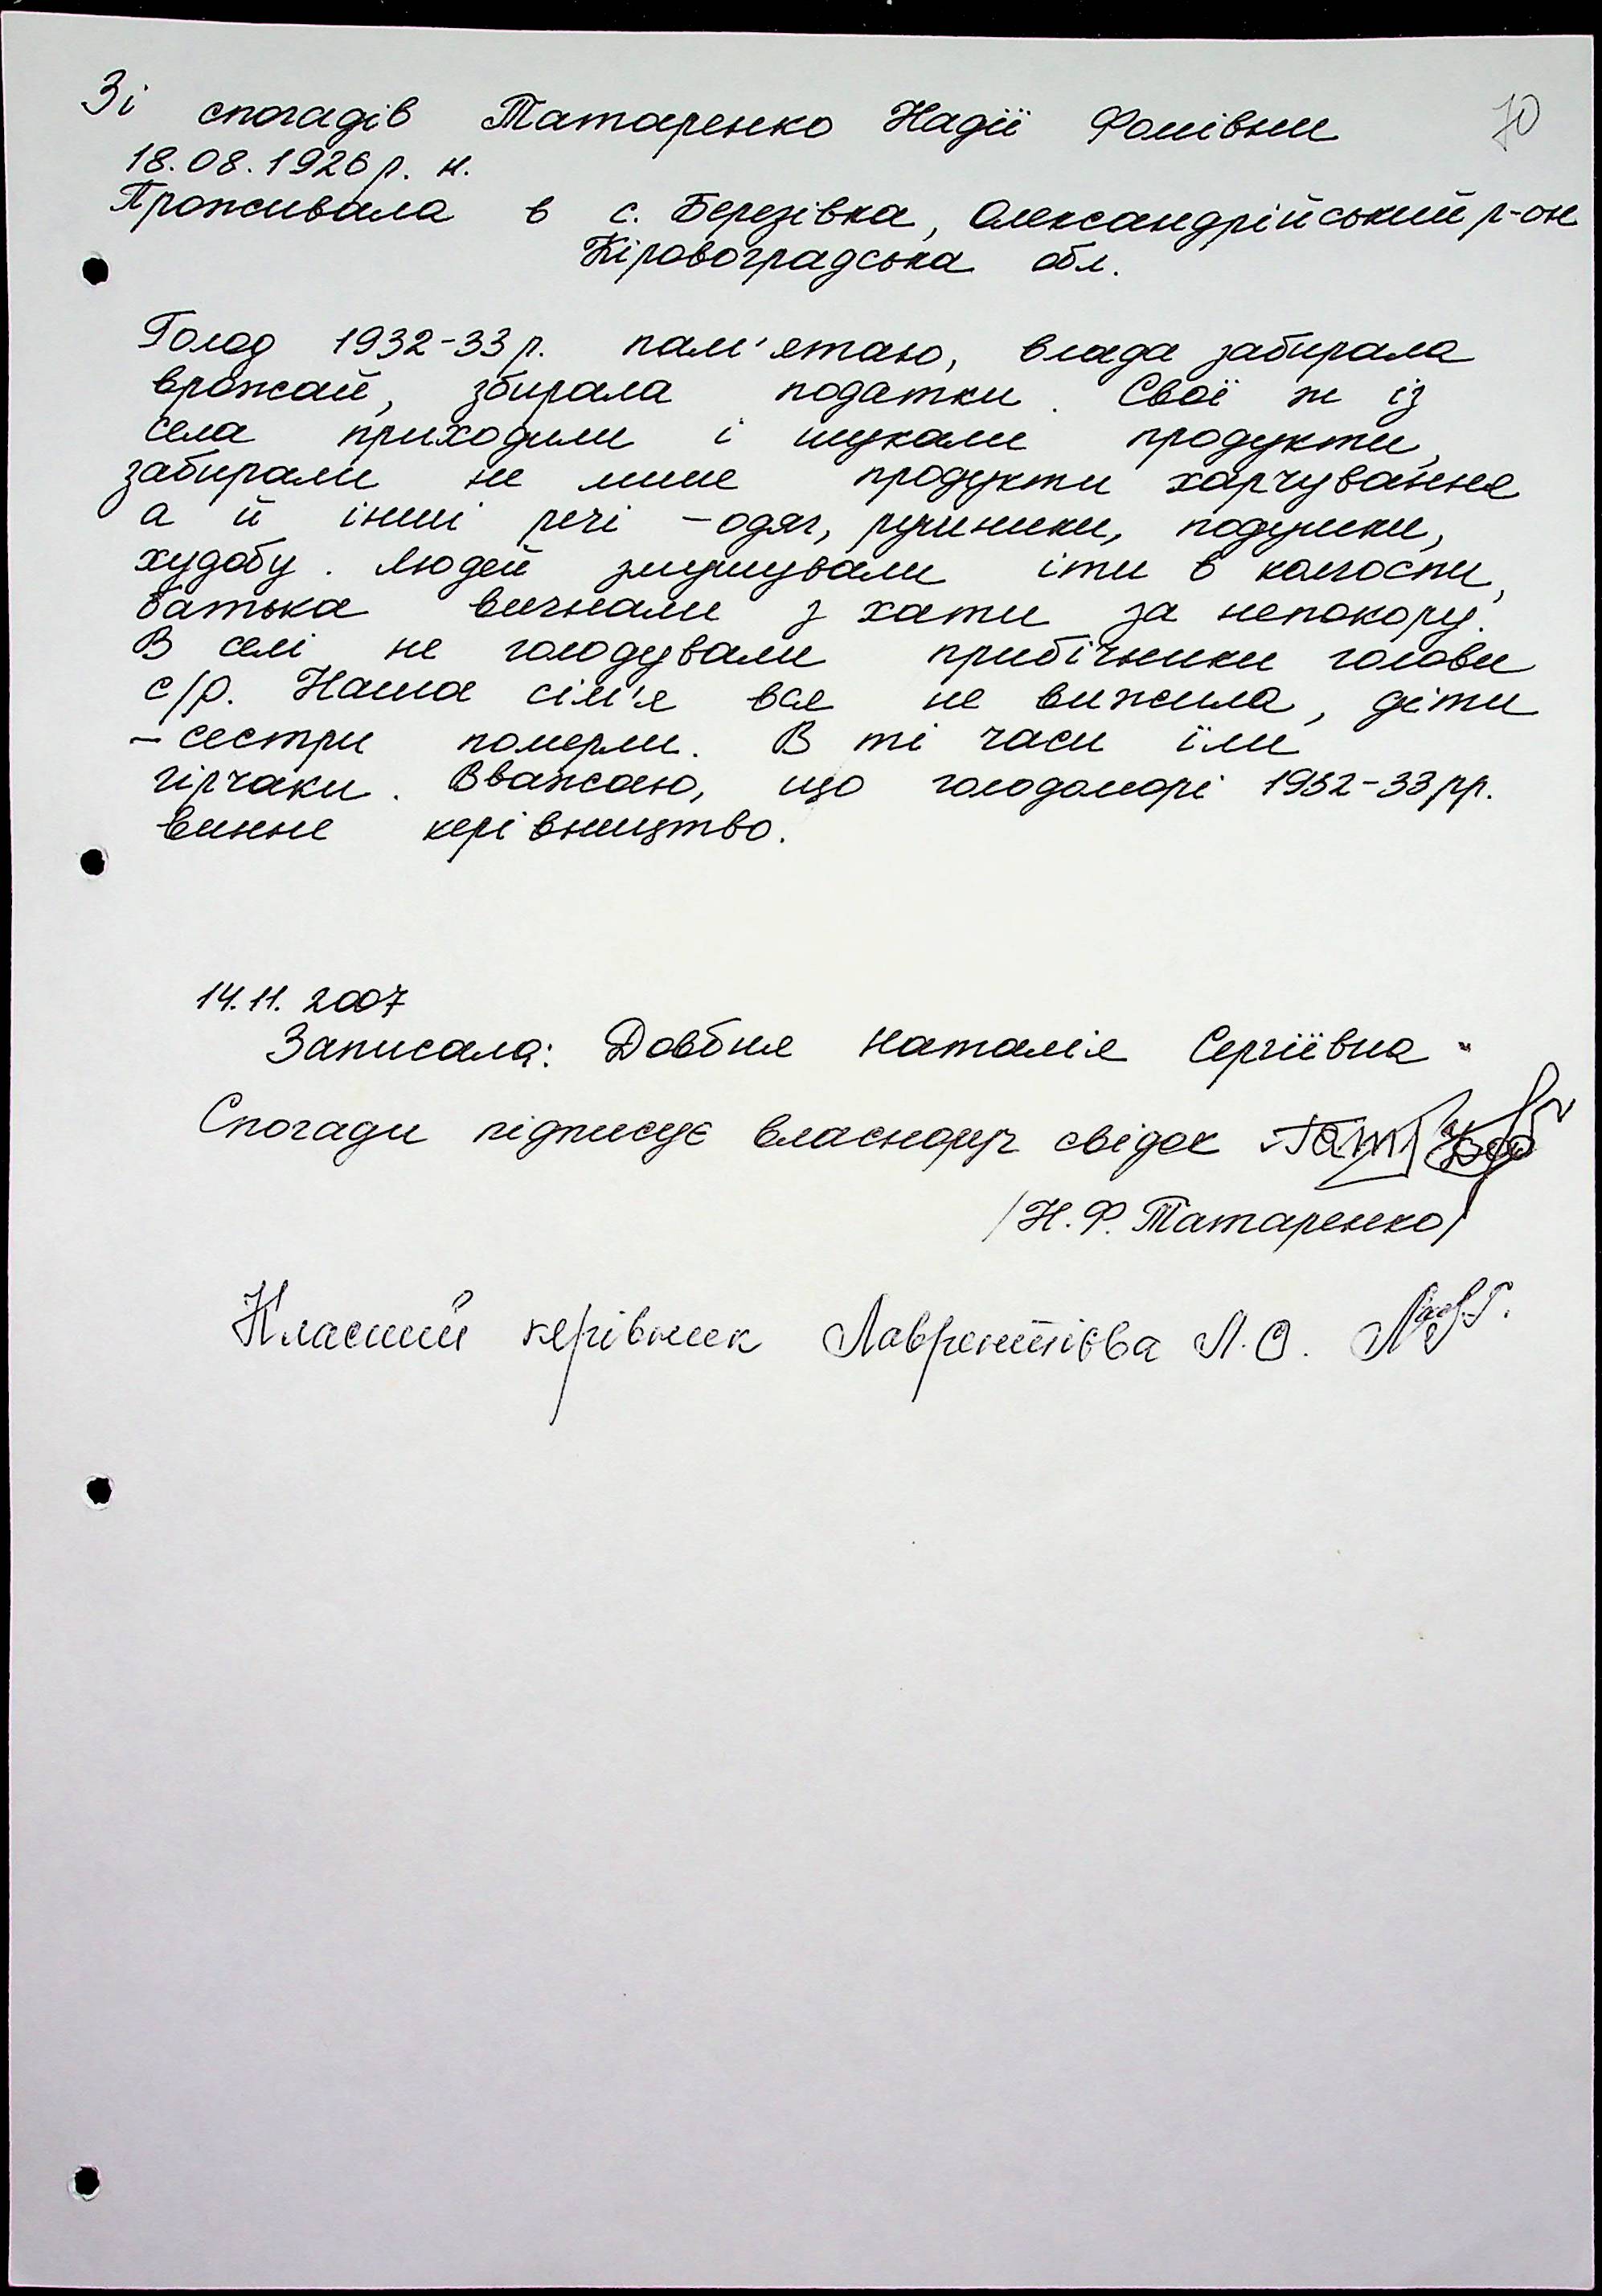 70
Зі спогадів Татаренко Надії Фомівни
18.08.1926 р. н.
Проживала в с. Березівка, Олександрійський р-он
Кіровоградська обл.
Голод 1932-33 р. пам'ятаю, влада забирала
врожай, збирала податки. Свої ж із
села приходили і шукали продукти,
забирали не лише продукти харчування
а й інші речі - одяг, рушники, подушки,
худобу. Людей змушували іти в колгоспи,
батька вигнали з хати за непокору.
В селі не голодували прибічники голови
с/р. Наша сім'я вся не вижила, діти
- сестри померли. В ті часи їли
гірчаки. Вважаю, що голодоморі 1932-33 рр.
винне керівництво.
14.11.2007
Записала: Довбня Наталія Сергіївна
Спогади підписує власноруч свідок Тат
/Н.Ф. Татаренко/
Класний керівник Лаврентієва Л.О.